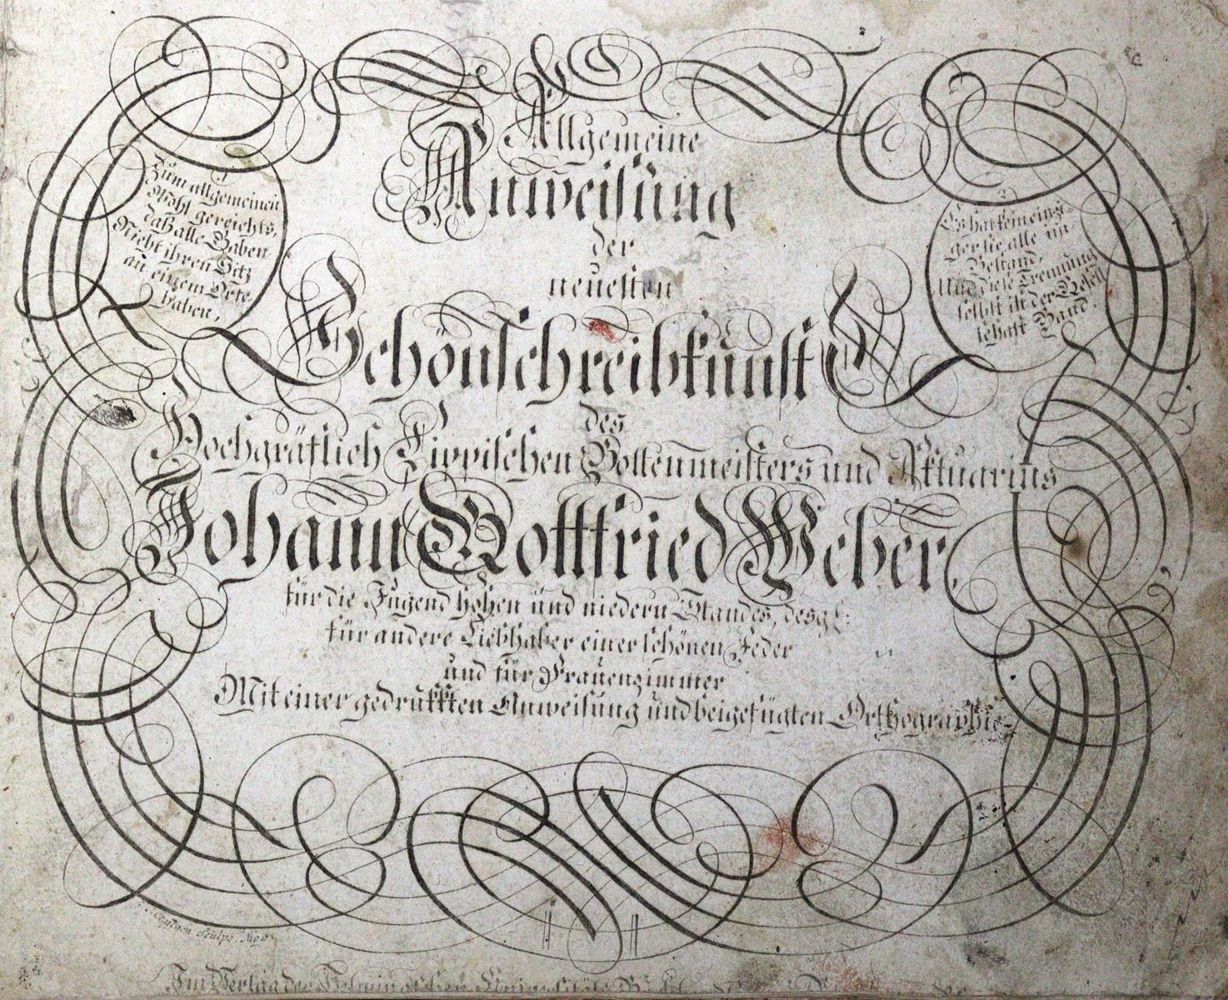 Allgemeine
Anweisung
der
neuesten
Schönschreibkunst
des
Hochgräflich Lippischen Bottenmeisters und Aktuarius
Johann Gottfried Weber,
für die Jugend hohen und niedern Standes, desgl:
für andere Liebhaber einer schönen Feder
und für Frauenzimmer
Mit einer gedrukkten Anweisung und beigefügten Orthographie
Zum allgemeinen
Wohl gereichts,
daß alle Gaben
Nicht ihren Sitz
an einem Orte
haben,
Es hat kein einzi-
ger sie alle im
Bestand,
und diese Trennung
selbst ist der Gesell-
schaft Band
sculps.
Im Verlag der